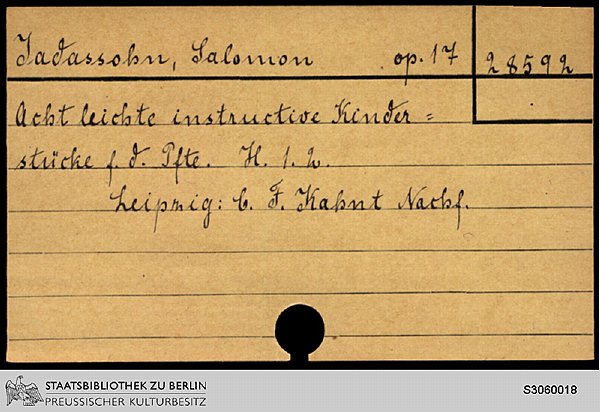 Jadassohn, Salomon op. 17 28592
Acht leichte instructive Kinder=
stücke f. d. Pfte. H. 1. 2.
Leipzig: C. F. Kahnt Nachf.
STAATSBIBLIOTHEK ZU BERLIN
PREUSSISCHER KULTURBESITZ
S3060018